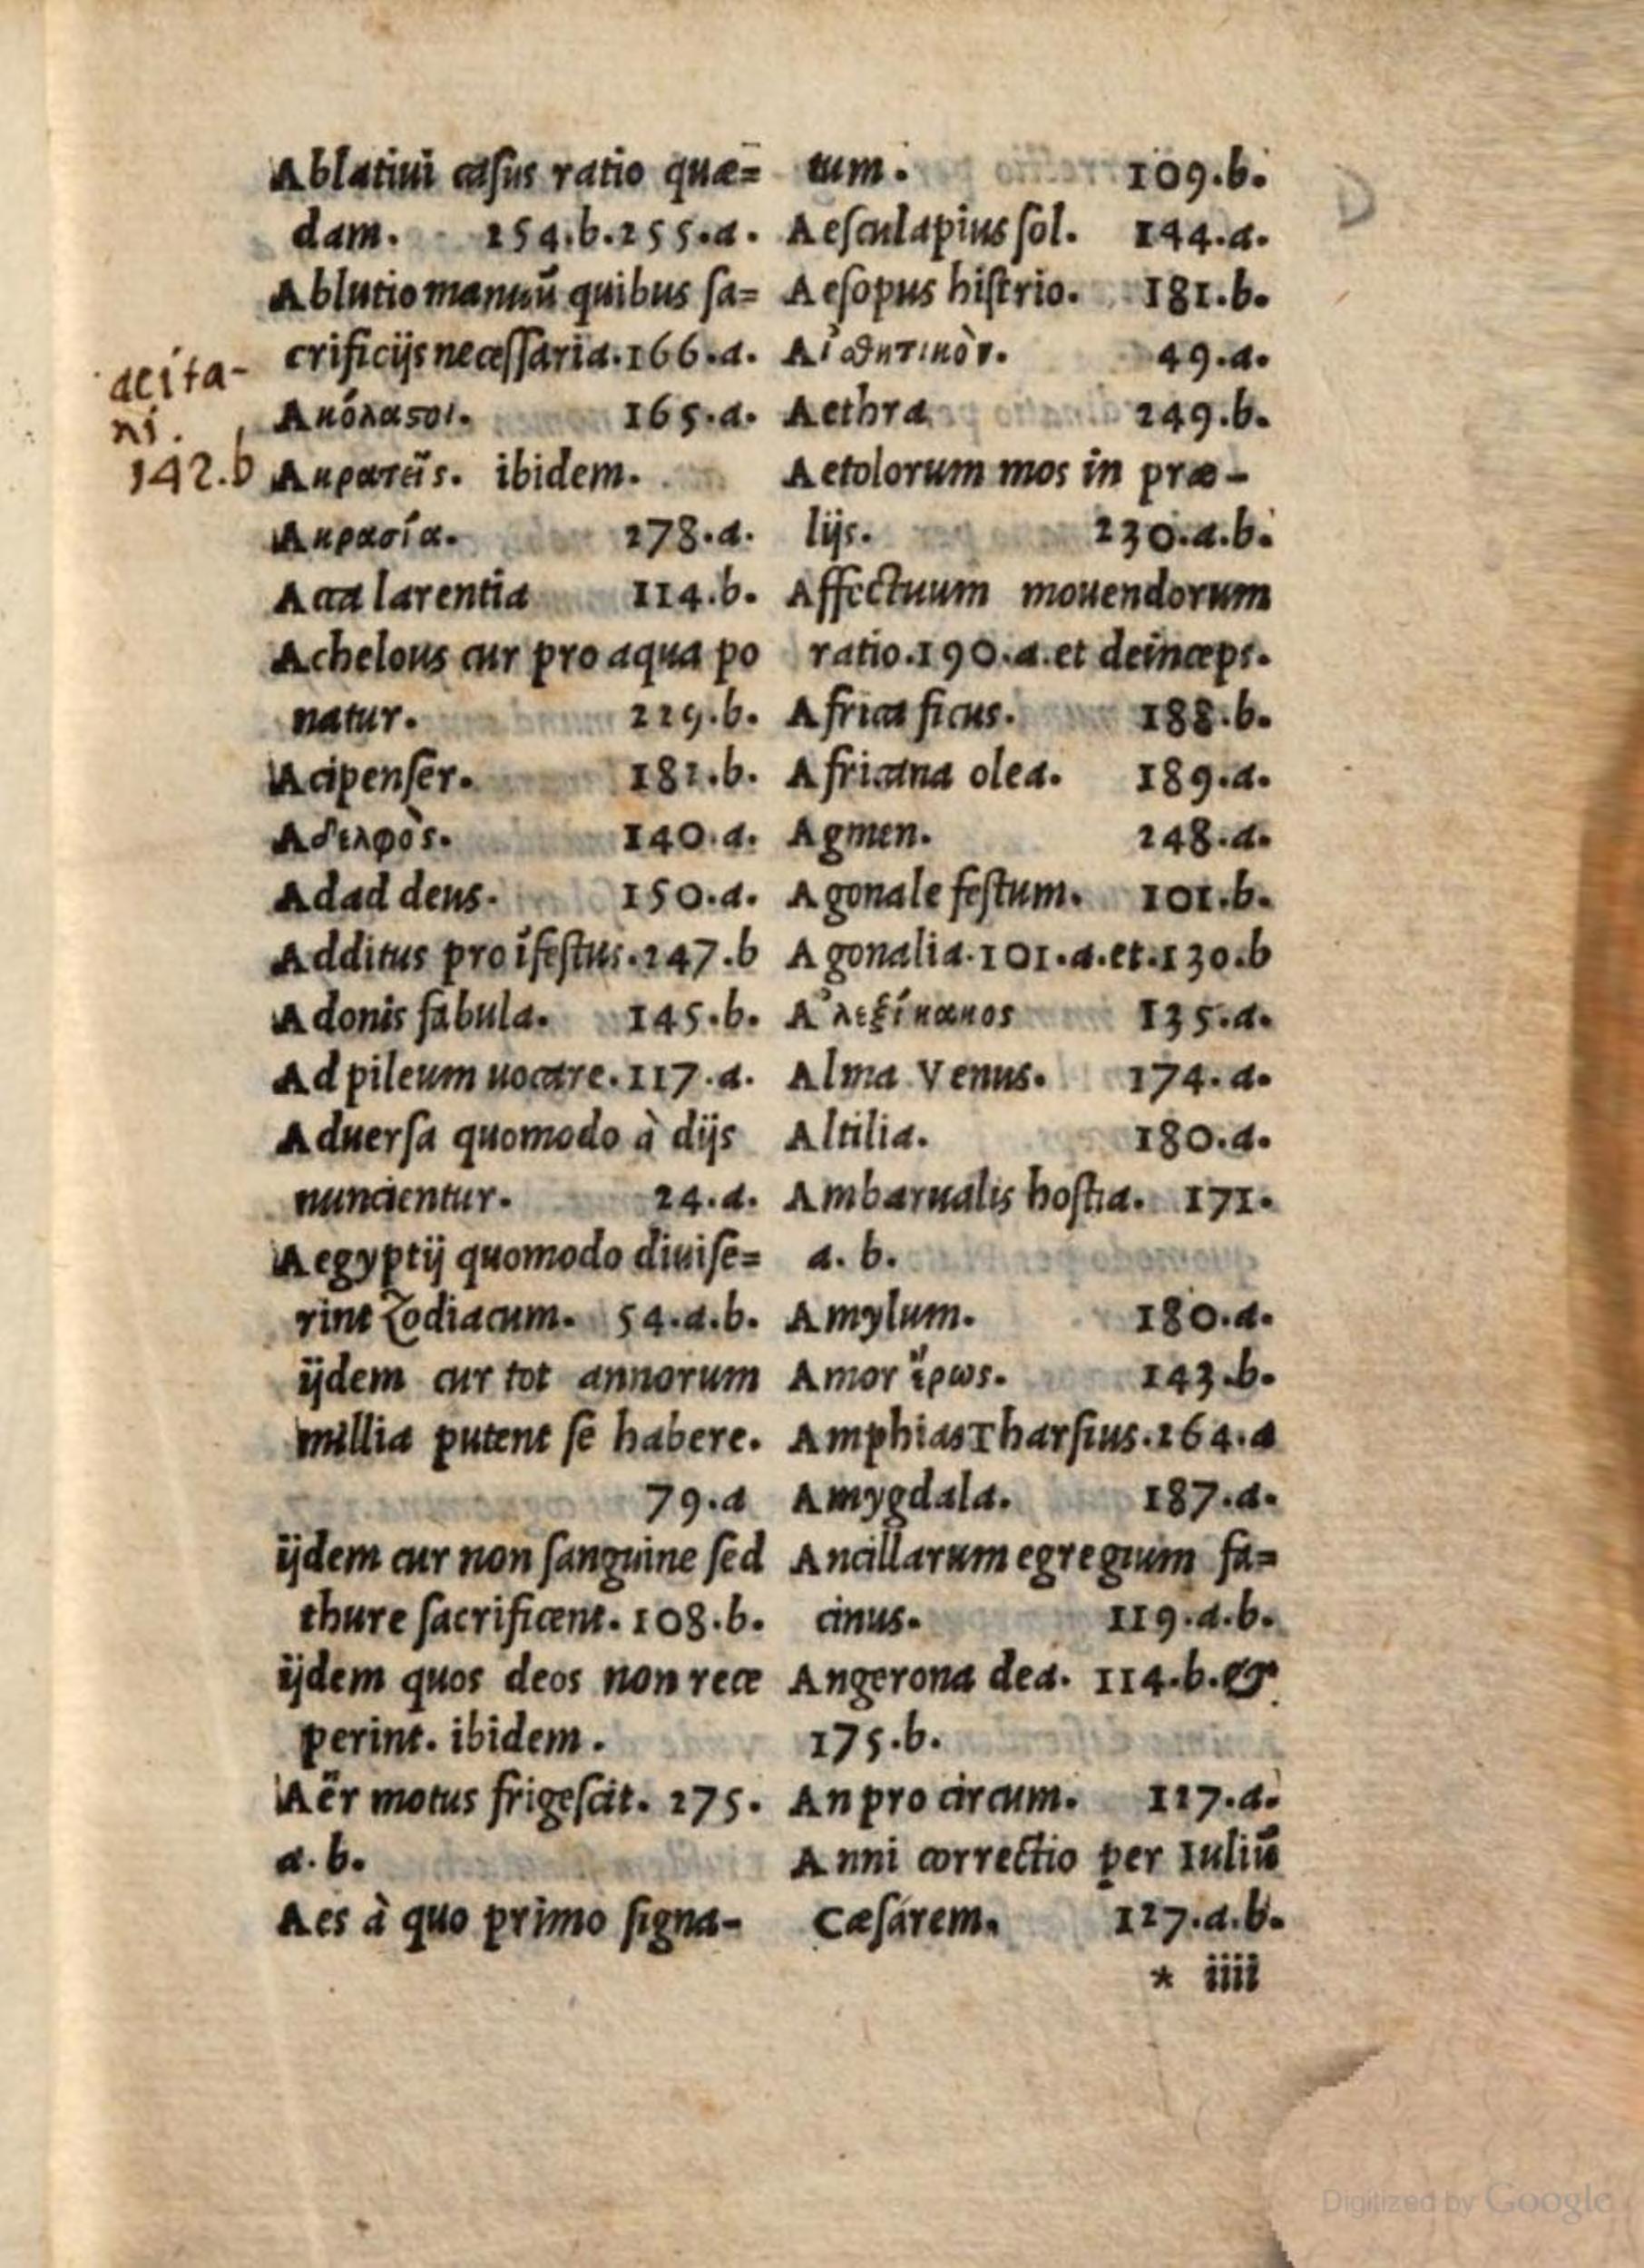 Ablatiui caſus ratio quæ=
dam. 254.b.255.a.
Ablutio manuũ quibus ſa=
crificijs neceſſaria. 166.a.
acita-
ni.
142.b
Ακόλαϛοι. 165.a.
Ακρατεῖς. ibidem.
Ακρασία. 278.a.
Acca larentia 114.b.
Achelous cur pro aqua po
natur. 229.b.
Acipenſer. 182.b.
Αδελφὸς. 140.a.
Adad deus. 150.a.
Additus pro ĩfeſtus. 247.b
Adonis fabula. 145.b.
Ad pileum uocare. 117.a.
Aduerſa quomodo à dijs
nuncientur. 24.a.
Aegyptij quomodo diuiſe=
rint Zodiacum. 54.a.b.
ijdem cur tot annorum
millia putent ſe habere.
79.a
ijdem cur non ſanguine ſed
thure ſacrificent. 108.b.
ijdem quos deos non rece
perint. ibidem.
Aër motus frigeſcit. 275.
a.b.
Aes à quo primo ſigna-
tum. 109.b.
Aeſculapius ſol. 144.a.
Aeſopus hiſtrio. 181.b.
Αἰσθητικὸν. 49.a.
Aethra 249.b.
Aetolorum mos in præ-
lijs. 230.a.b.
Affectuum mouendorum
ratio. 190.a. et deinceps.
Africa ficus. 188.b.
Africana olea. 189.a.
Agmen. 248.a.
Agonale feſtum. 101.b.
Agonalia. 101.a. et. 130.b
Ἀλεξίκακος 135.a.
Alma Venus. 174.a.
Altilia. 180.a.
Ambarualis hoſtia. 171.
a. b.
Amylum. 180.a.
Amor ἔρως. 143.b.
Amphias Tharſius. 264.a
Amygdala. 187.a.
Ancillarum egregium fa=
cinus. 119.a.b.
Angerona dea. 114.b. &
175.b.
An pro circum. 127.a.
Anni correctio per Iuliũ
Cæſarem. 127.a.b.
* iiii
Digitized by Google